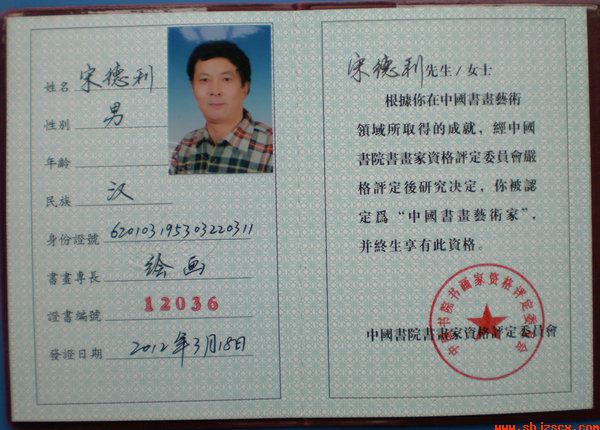 姓名 宋德利
性别 男
年龄
民族 汉
身份證號 620103195303220311
書畫專長 绘画
證書編號 12036
發證日期 2012年3月18日
宋德利先生/女士
根據你在中國書畫藝術
領域所取得的成就,經中國
書院書畫家資格評定委員會嚴
格評定後研究決定,你被認
定爲“中國書畫藝術家”,
并終生享有此資格。
中國書院書畫家資格評定委員會
中国书院书画家资格评定委员会
www.sbjzscx.com